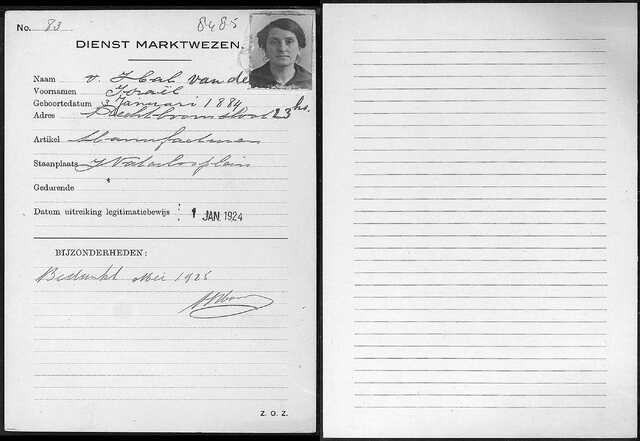 No. 83 8485
DIENST MARKTWEZEN.
Naam v. Hal van de
Voornamen Israël
Geboortedatum 3 Januari 1884
Adres Rechtboomssloot 23 hs.
Artikel Manufacturen
Staanplaats Waterlooplein
Gedurende
Datum uitreiking legitimatiebewijs 1 JAN. 1924
BIJZONDERHEDEN:
Bedankt Mei 1925
Z. O. Z.